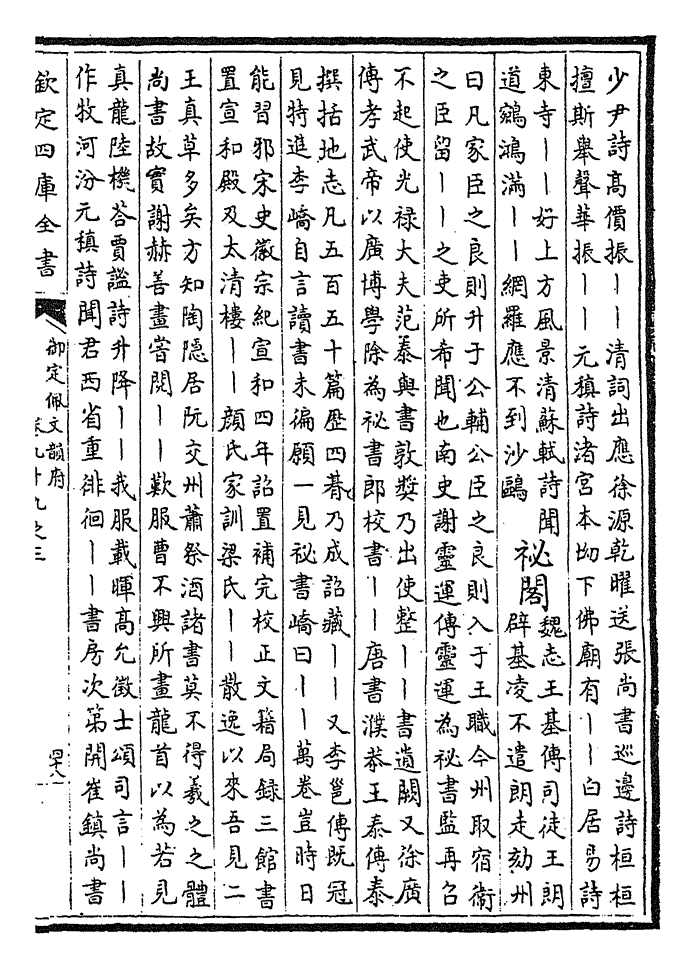 少尹詩髙價振丨丨清詞出應徐源乾曜送張尚書巡邊詩桓桓
擅斯舉聲華振丨丨元稹詩渚宮本坳下佛廟有丨丨白居易詩
東寺丨丨好上方風景清蘇軾詩聞
道鵷鴻滿丨丨網羅應不到沙鷗
祕閣
魏志王基傳司徒王朗
辟基凌不遣朗走劾州
曰凡家臣之良則升于公輔公臣之良則入于王職今州取宿衛
之臣留丨丨之吏所希聞也南史謝靈運傳靈運為祕書監再召
不起使光禄大夫范泰與書敦奬乃出使整丨丨書遺闕又徐廣
傳孝武帝以廣博學除為祕書郎校書丨丨唐書濮恭王泰傳泰
撰括地志凡五百五十篇歴四朞乃成詔藏丨丨又李邕傳既冠
見特進李嶠自言讀書未徧願一見祕書嶠曰丨丨萬卷豈時日
能習邪宋史徽宗紀宣和四年詔置補完校正文籍局録三館書
置宣和殿及太清樓丨丨顔氏家訓梁氏丨丨散逸以來吾見二
王真草多矣方知陶隠居阮交州蕭祭酒諸書莫不得羲之之體
尚書故實謝赫善畫嘗閲丨丨歎服曹不興所畫龍首以為若見
真龍陸機荅賈謐詩升降丨丨我服載暉髙允徵士頌司言丨丨
作牧河汾元稹詩聞君西省重徘徊丨丨書房次第開崔鎮尚書
欽定四庫全書
御定佩文韻府
卷九十九之三
四十八